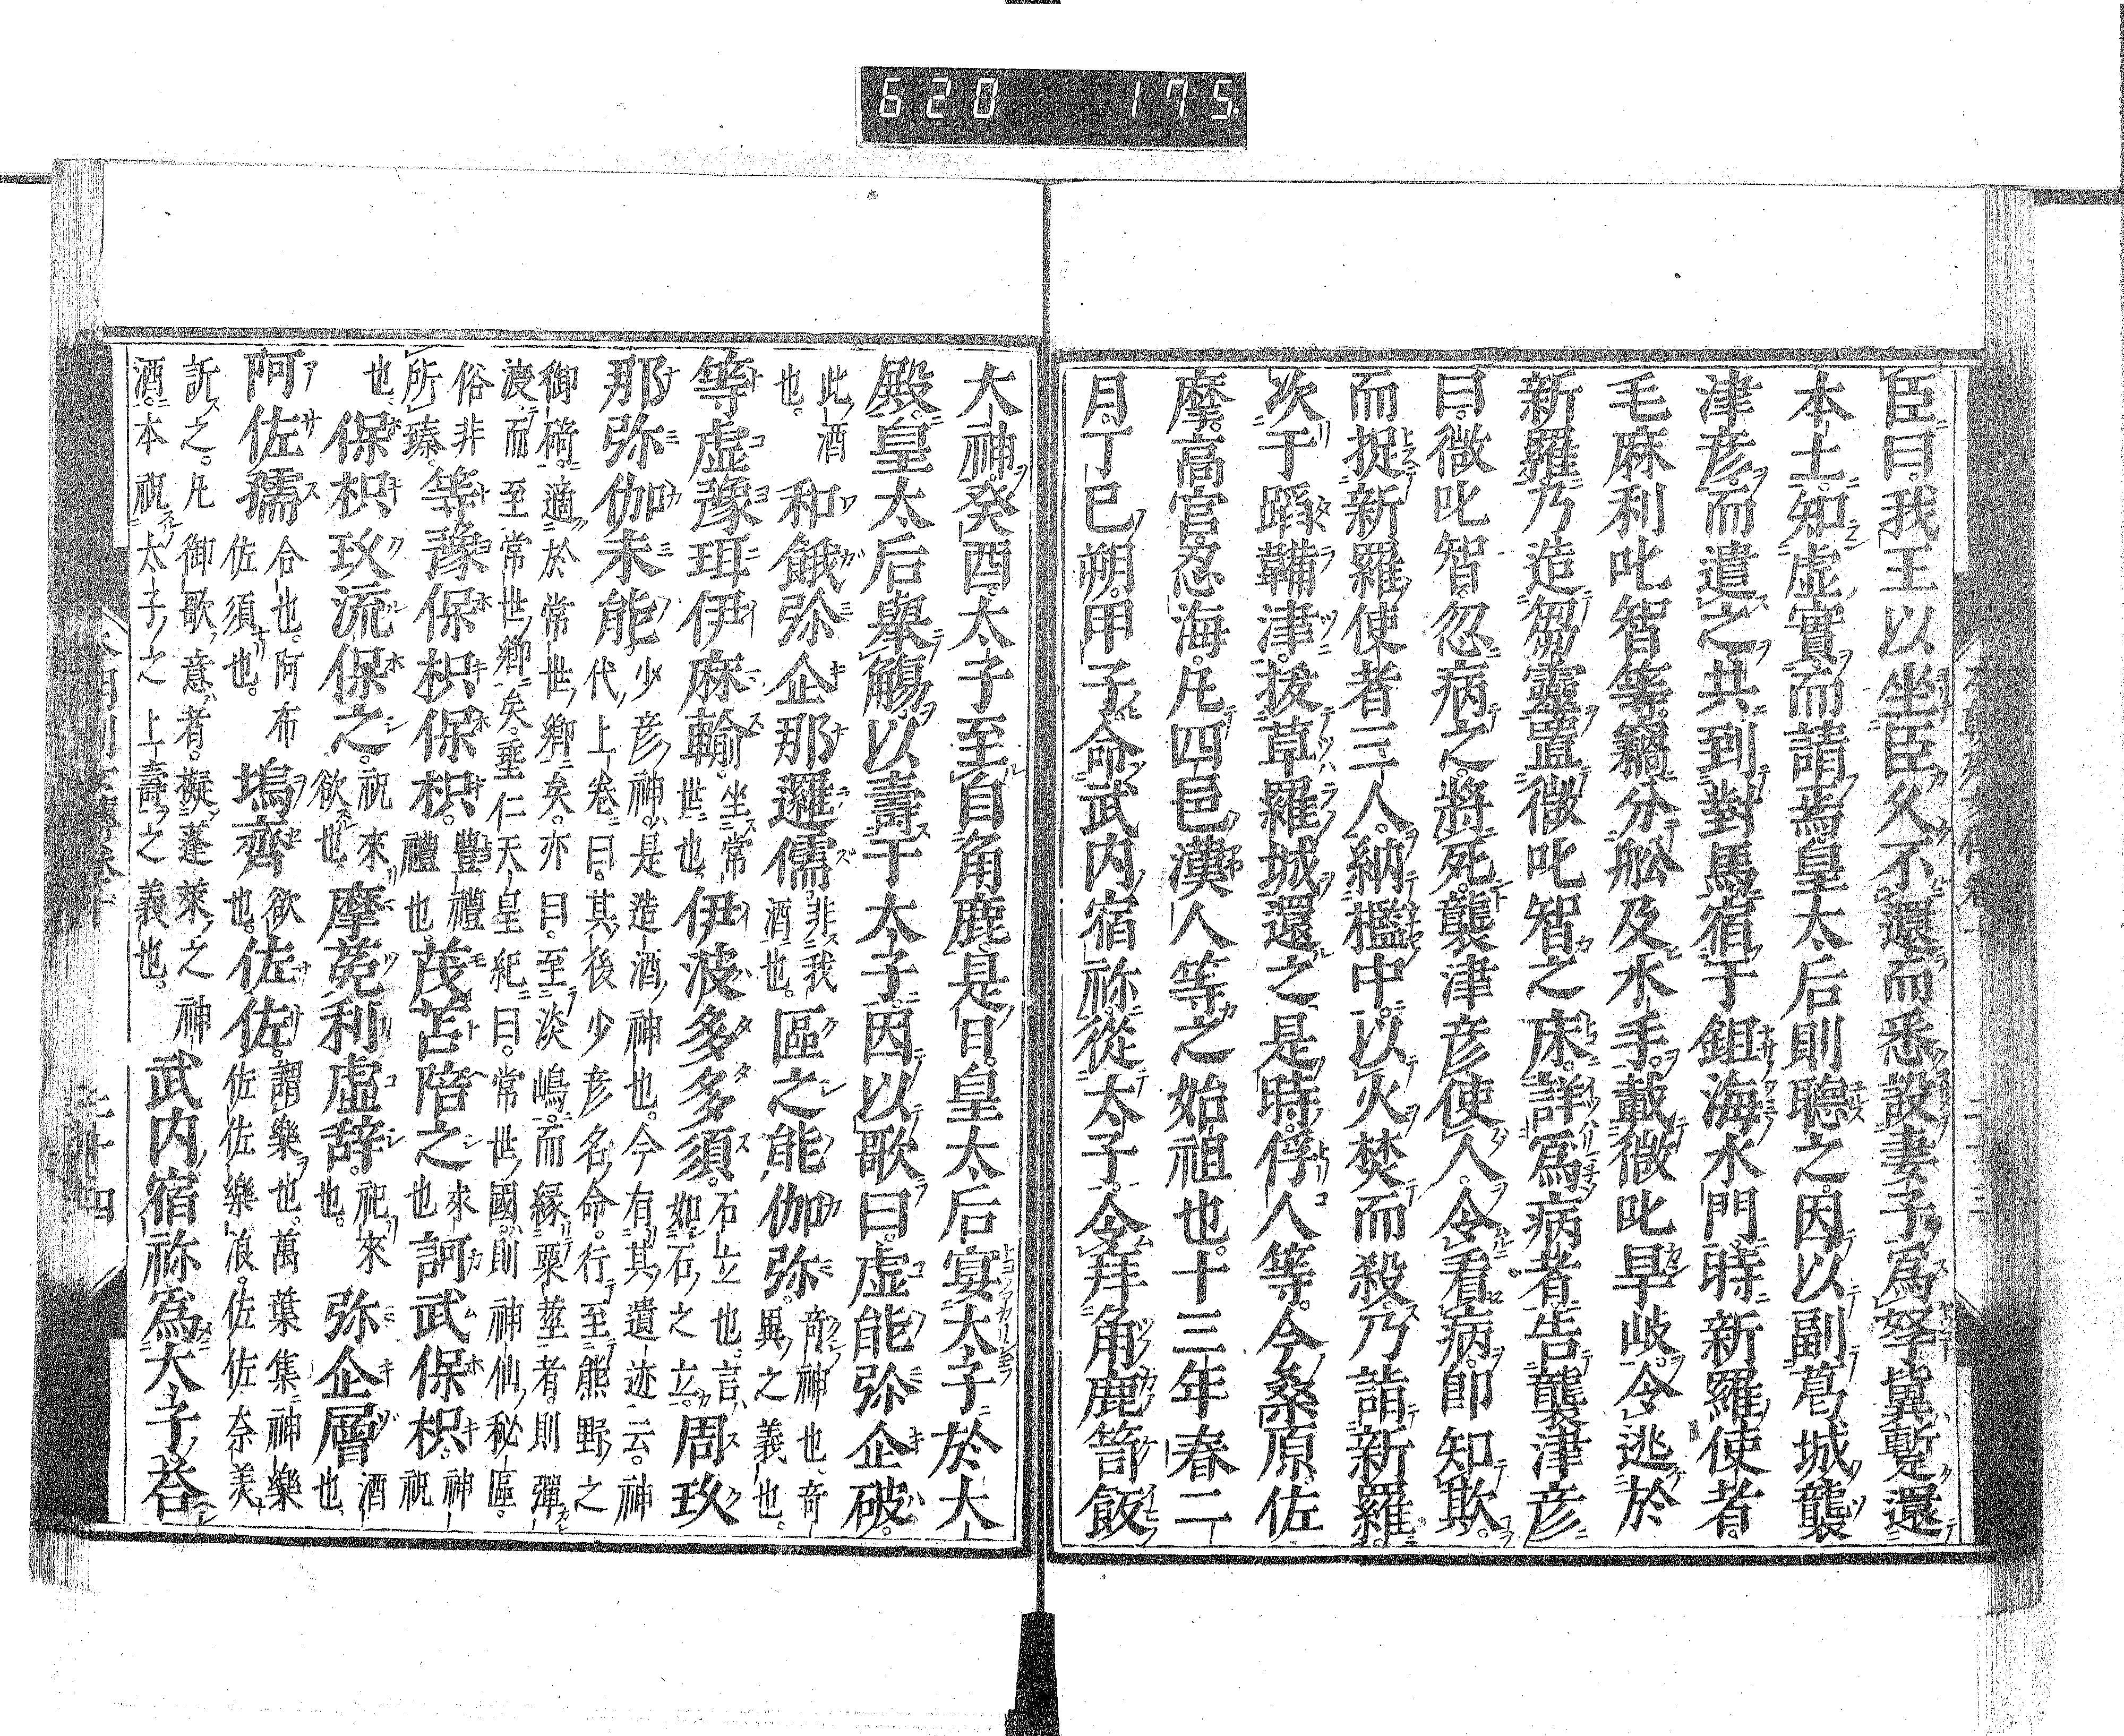 臣曰。我王以坐臣久不還。而悉設妻子為孥。冀蹔還
本土。知虚實。而請焉皇太后則聽之。因以副葛城襲
津彦。而遣之。共到對馬宿于鉏海水門。時新羅使者。
毛麻利叱智等。竊分舩及水手。載微叱旱岐。令逃於
新羅。乃造蒭靈置微叱智之床。詳為病者告襲津彦
曰。微叱智。忽病之。將死。襲津彦使人。令看病。即知欺。
而捉新羅使者三人。納檻中。以火焚而殺。乃詣新羅。
次于蹈鞴津。拔草羅城還之。是時。俘人等。今桑原。佐
摩。高官。忍海。凡四邑漢人等之始祖也。十三年春二
月。丁巳朔。甲子命武内宿祢。從太子。令拜角鹿笥飯
大神。癸酉。太子至自角鹿。是日。皇太后宴太子於大
殿。皇太后舉觴以壽于太子。因以歌曰。虚能弥企破。
此酒也。和餓弥企那邏儒非我酒也。區之能伽弥。奇神也。奇異之義也。
等虚豫珥伊麻輸。坐常世也。伊波多多須。石立也。言如石之立。周玖
那弥伽未能。少彦神。是造酒神也。今有其遺迹云。神代上卷曰。其後少彦名命。行至熊野之
御碕。適於常世郷矣。亦曰。至淡嶋。而縁粟莖者。則彈渡。而至常世郷矣。垂仁天皇紀曰。常世國。則神仙秘區。
俗非所臻。等豫保枳保枳。豊禮禮也。茂苫陪之來也訶武保枳。神祝
也。保枳玖流保之。祝來欲也。摩菟利虚辞。祀來也。弥企層酒也。
阿佐孺合也。阿布佐須也。塢齊欲也。佐佐。謂樂也。萬葉集神樂佐佐樂浪。佐佐奈美
訢之。凡御歌意者。擬蓬萊之神酒。本祝太子之上壽之義也。武内宿祢為太子荅
二十四
620 175.